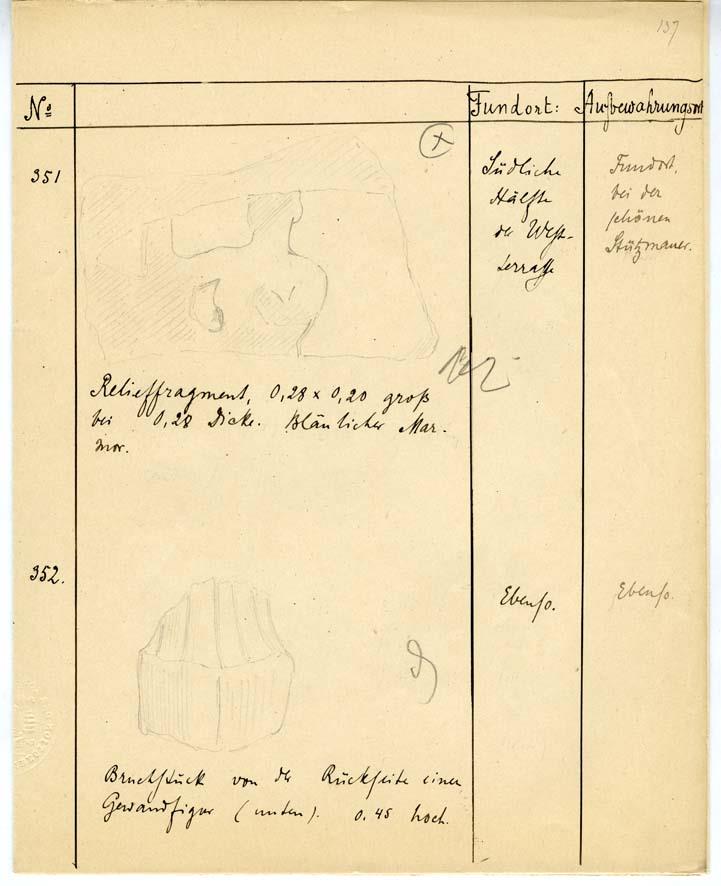 137
No Fundort: Aufbewahrungsort
351
Südliche
Hälfte
der West-
terrasse
Fundort,
bei der
schönen
Stützmauer.
Relieffragment, 0,28 x 0,20 groß
bei 0,28 Dicke. Bläulicher Mar-
mor.
352.
Ebenso.
Ebenso.
Bruchstück von der Rückseite einer
Gewandfigur (unten). 0.45 hoch.